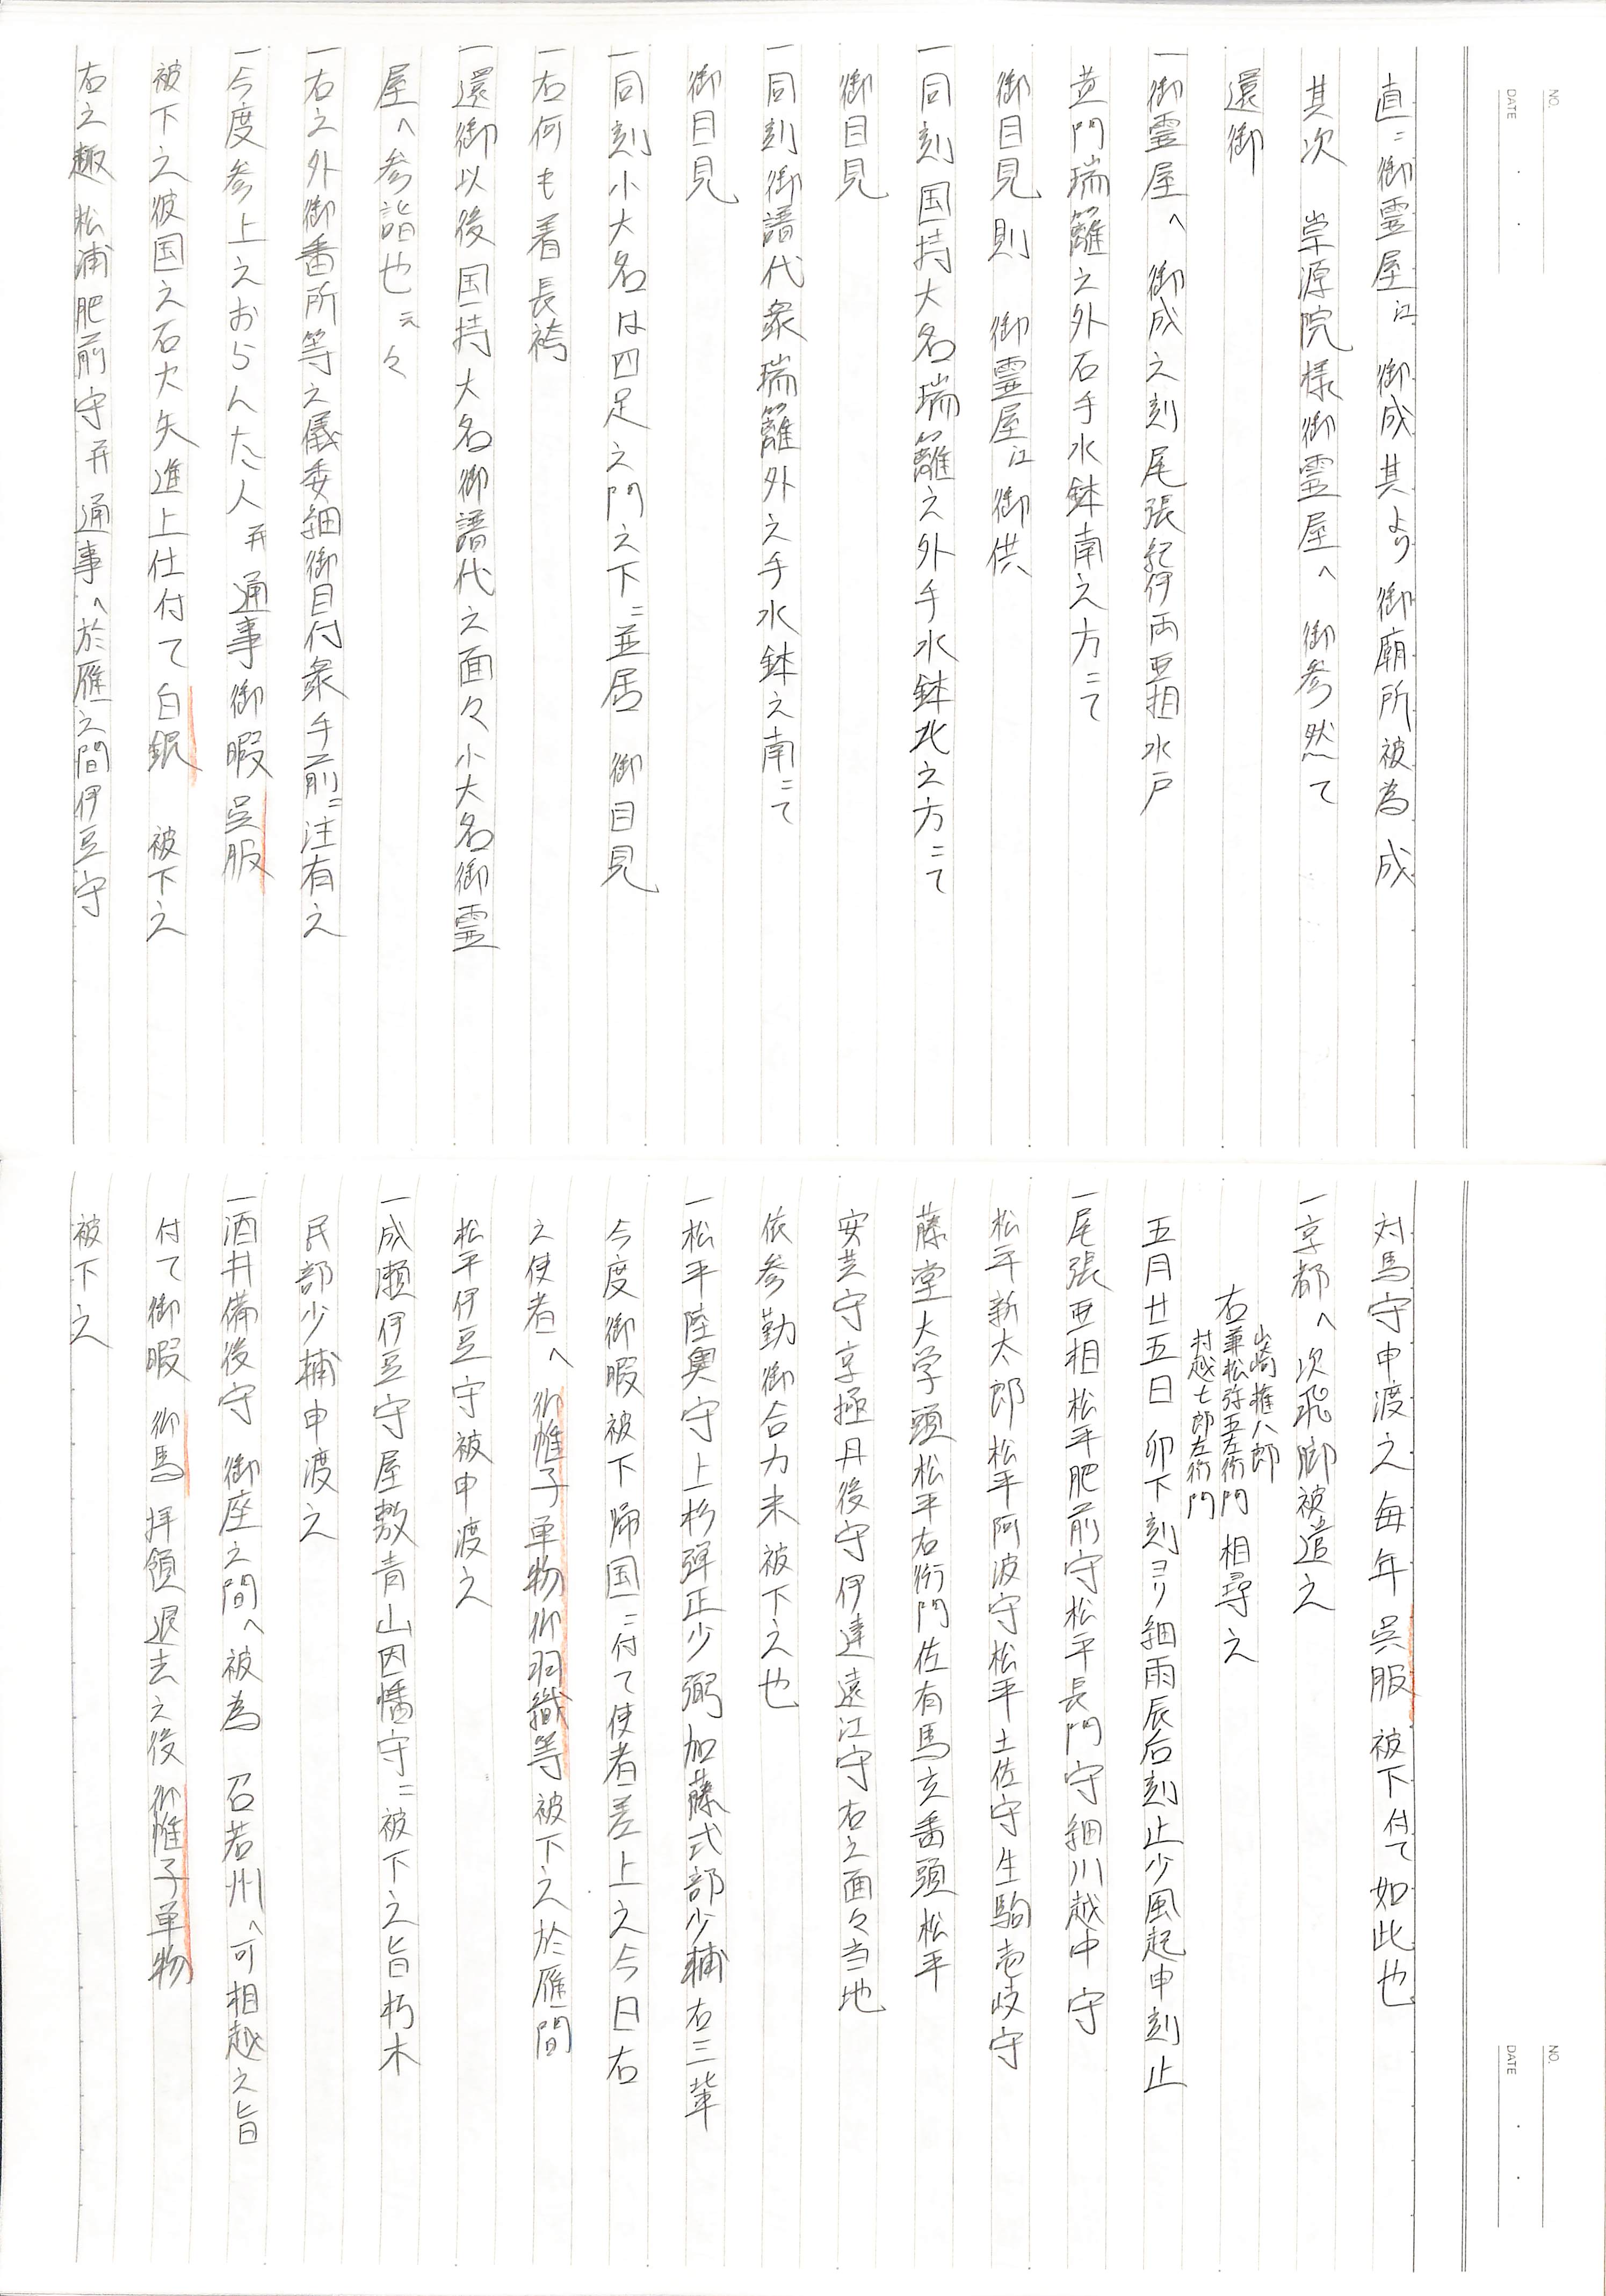 NO.
DATE
直ニ御霊屋江 御成其より 御廟所被為 成
其次 崇源院様御霊屋へ 御参 然て
還御
一御霊屋へ 御成之刻尾張紀伊両亜相水戸
黄門瑞籬之外石手水鉢南之方ニて
御目見 則 御霊屋江 御供
一同刻国持大名瑞籬之外手水鉢北之方ニて
御目見
一同刻御譜代衆瑞籬外之手水鉢之南ニて
御目見
一同刻小大名は四足之門之下ニ並居 御目見
一右何も着長袴
一還御以後国持大名御譜代之面々小大名御霊
屋へ参詣也云々
一右之外御番所等之儀委細御目付衆手前ニ注有之
一今度参上之おらんた人并通事御暇 呉服
被下之彼国之石火矢進上仕付て白銀 被下之
右之趣 松浦肥前守并通事へ於雁之間伊豆守
NO.
DATE
対馬守申渡之毎年 呉服 被下付て如此也
一京都へ次飛脚被遣之
山崎権八郎
右兼松弥五左衛門 相尋之
村越七郎左衛門
五月廿五日 卯下刻ヨリ細雨辰后刻止少風起申刻止
一尾張亜相松平肥前守松平長門守細川越中守
松平新太郎松平阿波守松平土佐守生駒壱岐守
藤堂大学頭松平右衛門佐有馬玄番頭松平
安芸守京極丹後守伊達遠江守右之面々当地
依参勤御合力米被下之也
一松平陸奥守上杉弾正少弼加藤式部少輔右三輩
今度御暇被下帰国ニ付て使者差上之今日右
之使者へ 御帷子単物御羽織等被下之於雁間
松平伊豆守被申渡之
一成瀬伊豆守屋敷青山因幡守ニ被下之旨朽木
民部少輔申渡之
一酒井備後守 御座之間へ被為 召若州へ可相越之旨
付て御暇 御馬 拝領退去之後 御帷子単物
被下之